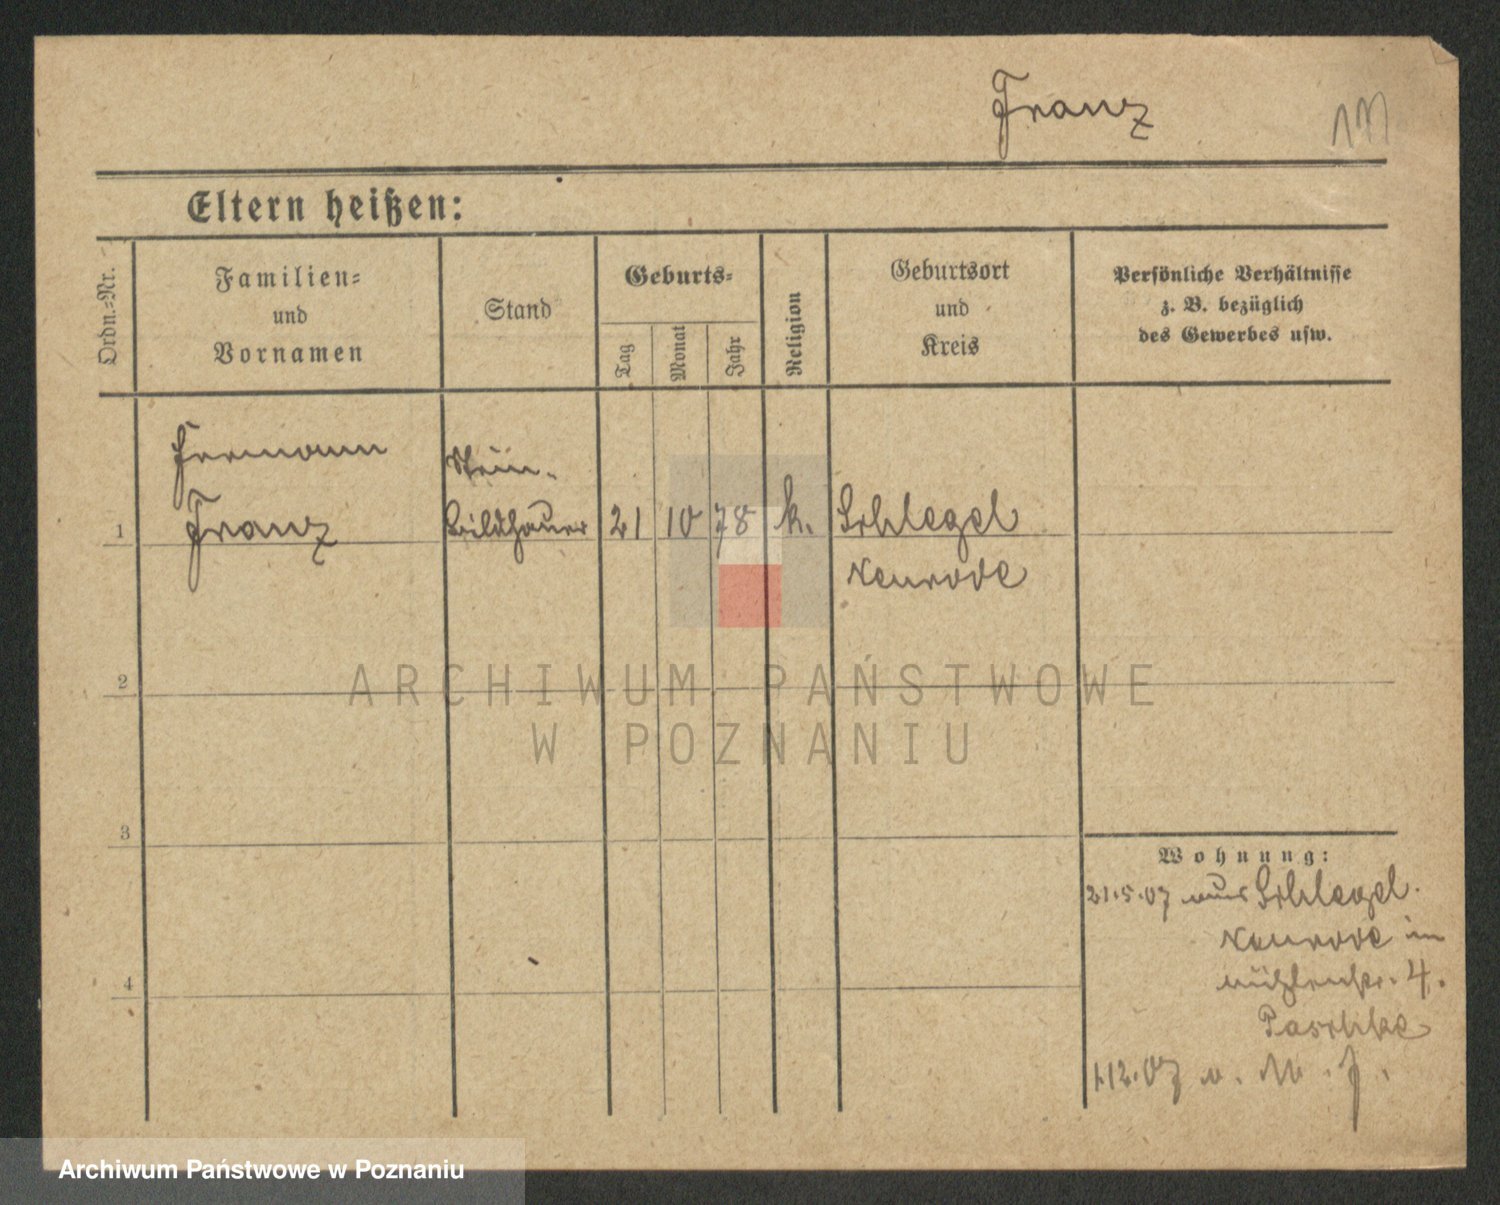 Franz
Eltern heißen:
Ordn.-Nr.
Familien-
und
Vornamen
Stand
Geburts-
Tag
Monat
Jahr
Religion
Geburtsort
und
Kreis
Persönliche Verhältnisse
z. B. bezüglich
des Gewerbes usw.
Hermann
Franz
Stein-
bildhauer
1
21 10 78 k.
Schlegel
Neurode
2
3
4
Wohnung:
21.5.07 aus Schlegel.
Neurode in
Mühlenstr. 4.
Paschke
1.12.07 n.
ARCHIWUM PAŃSTWOWE
W POZNANIU
Archiwum Państwowe w Poznaniu